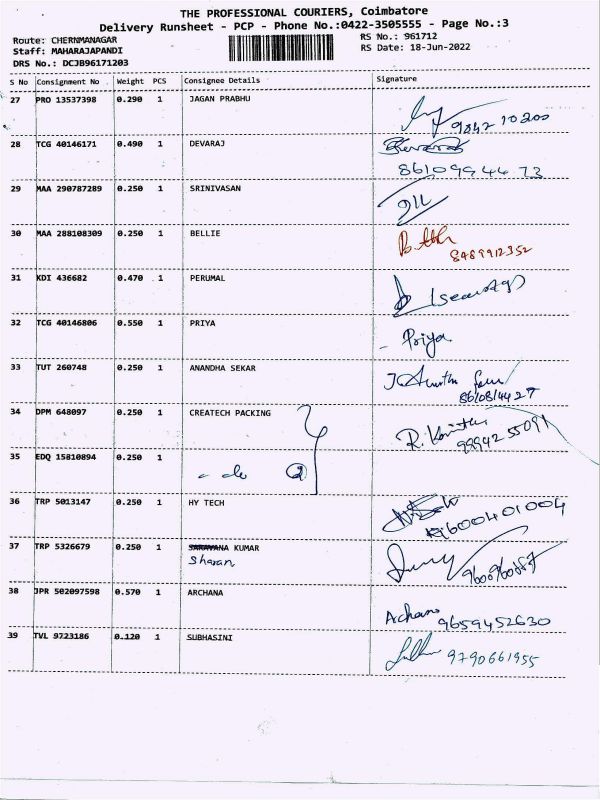 THE PROFESSIONAL COURIERS, Coimbatore
Delivery Runsheet - PCP - Phone No.:0422-3505555 - Page No.:3
Route: CHERNMANAGAR RS No.: 961712
Staff: MAHARAJAPANDI RS Date: 18-Jun-2022
DRS No.: DCJB96171203
S No Consignment No Weight PCS Consignee Details Signature
27 PRO 13537398 0.290 1 JAGAN PRABHU
9842710200
28 TCG 40146171 0.490 1 DEVARAJ
8610994473
29 MAA 290787289 0.250 1 SRINIVASAN
30 MAA 288108309 0.250 1 BELLIE
8489912352
31 KDI 436682 0.470 1 PERUMAL
32 TCG 40146806 0.550 1 PRIYA
- Priya
33 TUT 260748 0.250 1 ANANDHA SEKAR
8610814427
34 DPM 648097 0.250 1 CREATECH PACKING
9994255091
35 EDQ 15810894 0.250 1
- do
36 TRP 5013147 0.250 1 HY TECH
9600401004
37 TRP 5326679 0.250 1 SARAVANA KUMAR
Sharan
38 JPR 502097598 0.570 1 ARCHANA
Achana 9659452630
39 TVL 9723186 0.120 1 SUBHASINI
9790661955